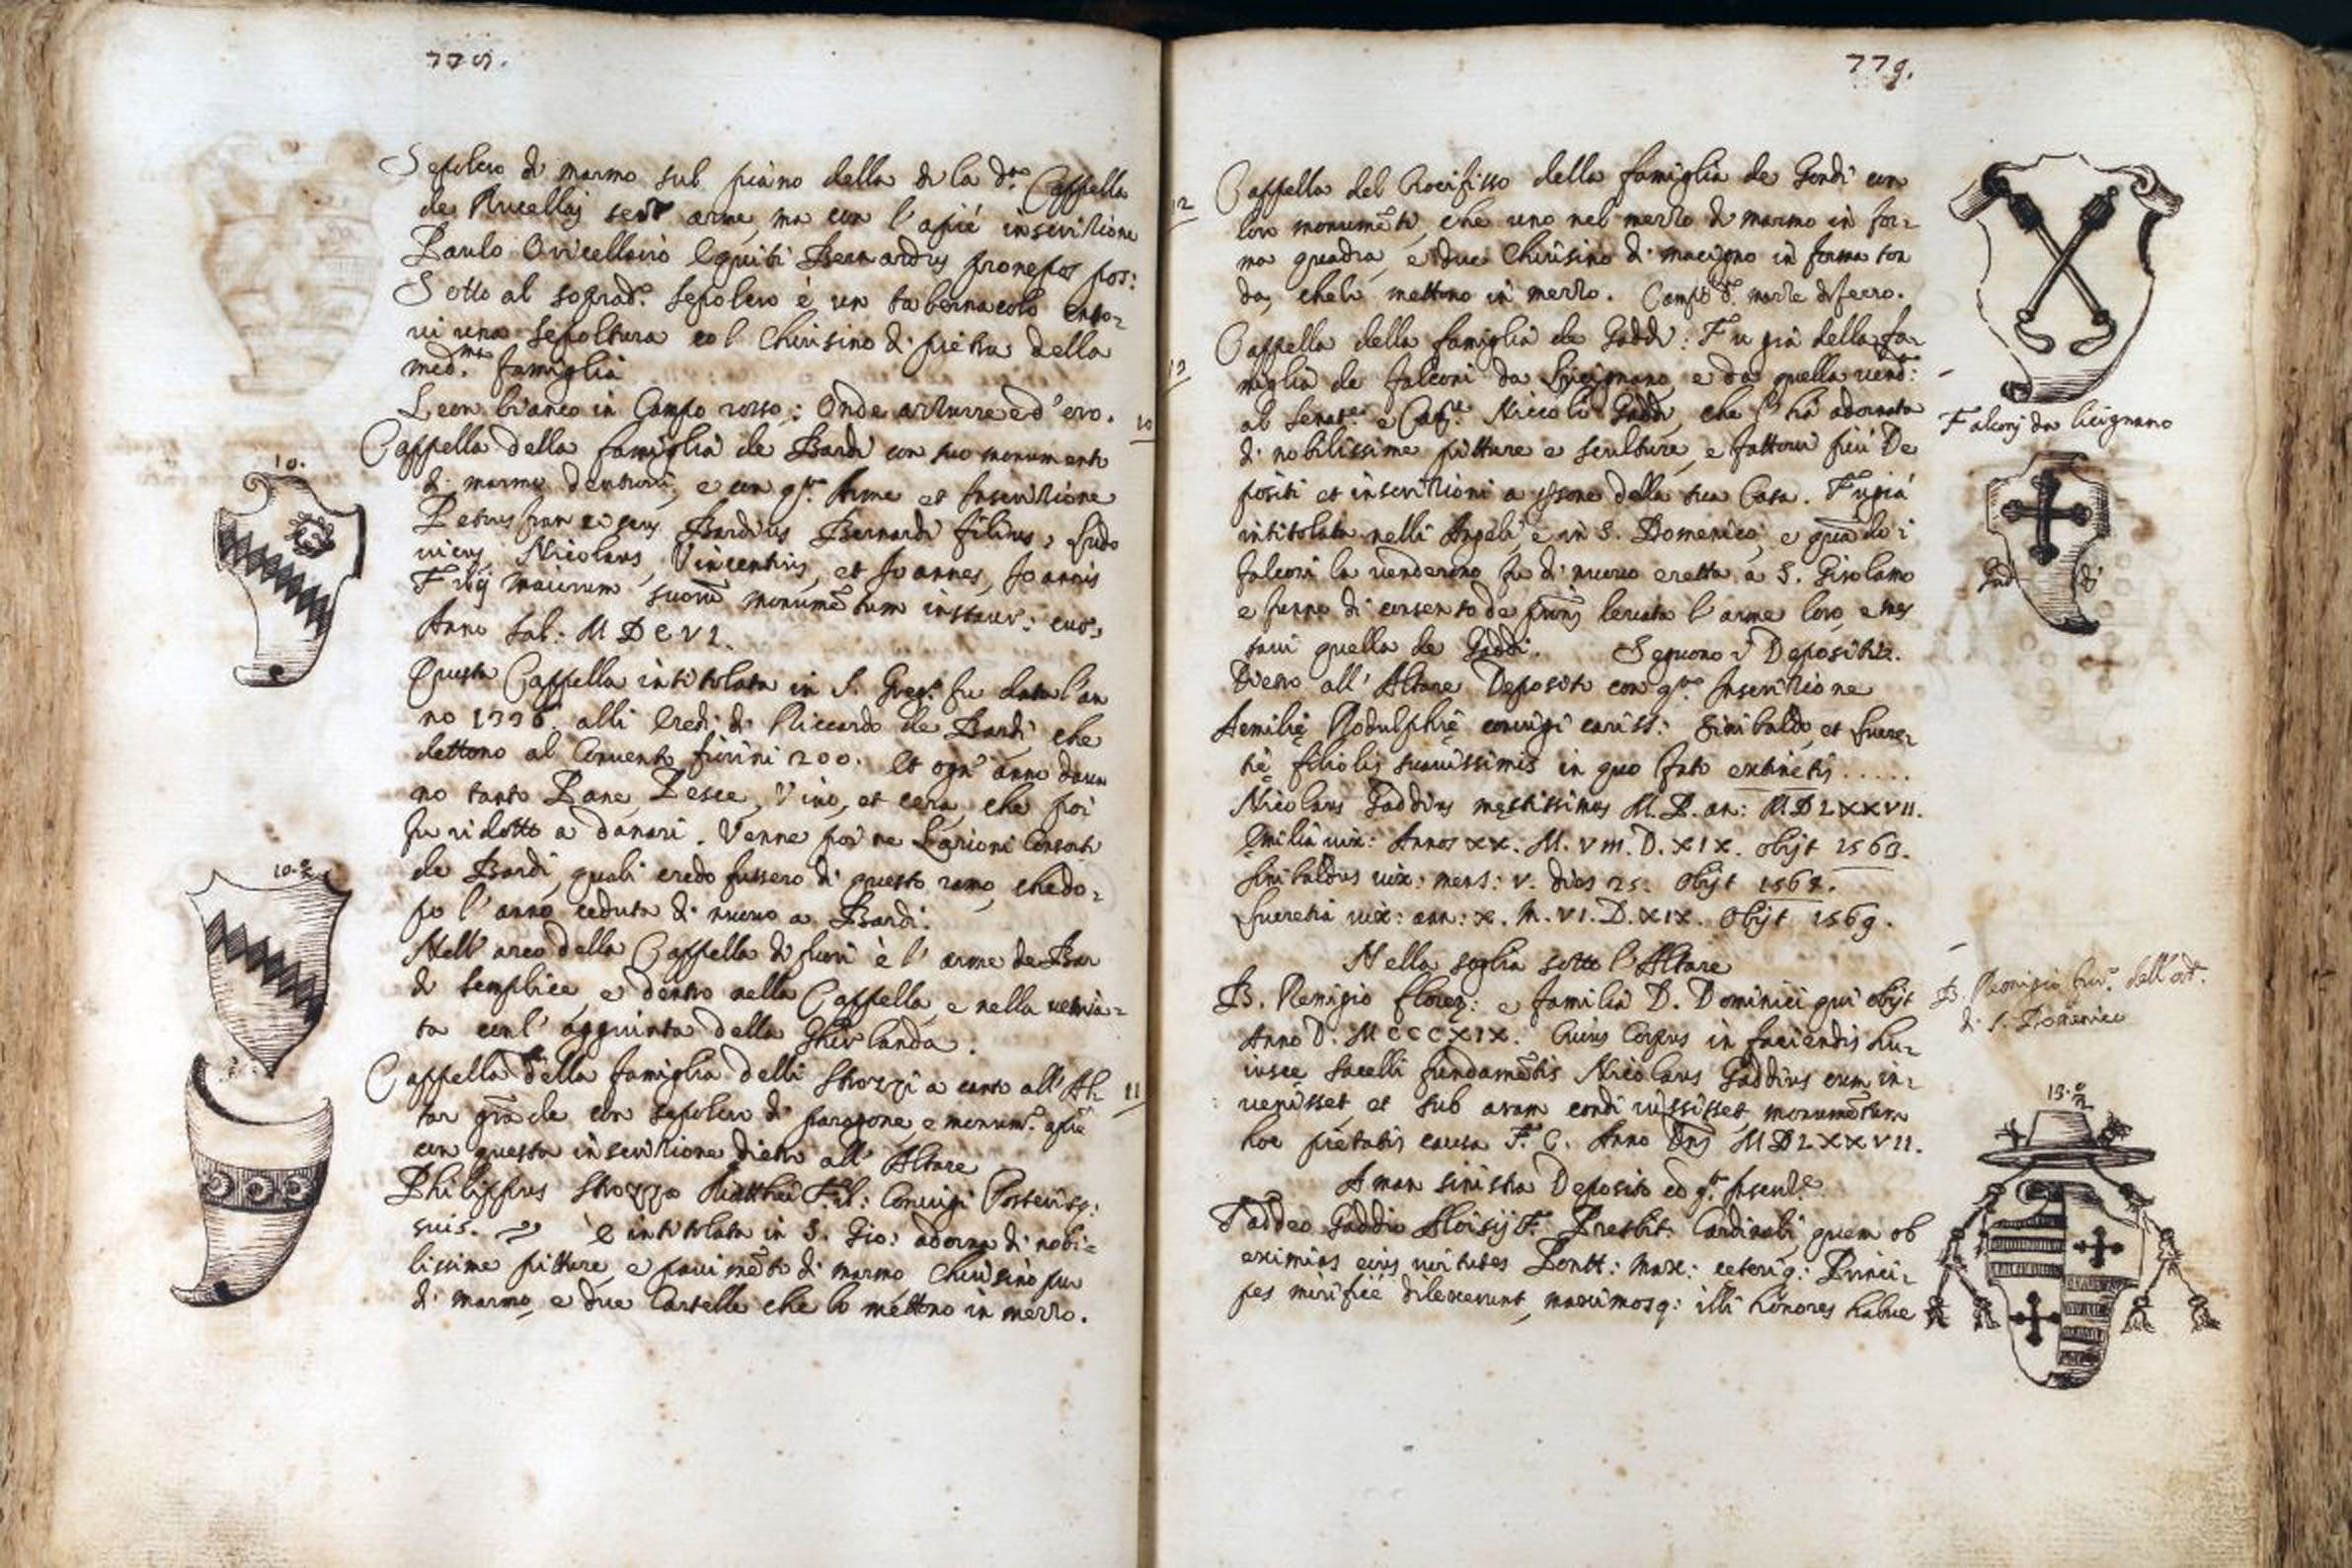 778.
Sepolcro di marmo sul piano della di la d.ª Cappella
de Rucellaj senz' arme, ma con l'apié inscrizione
Paulo Oricellario Equiti Bernardus pronepos pos:
Sotto al soprad.º sepolcro è un tabernacolo
vi una sepoltura col Chiusino di pietra della
med.ma famiglia
Leon bianco in Campo rosso: Onde azzurre e d'oro.
10
Cappella della famiglia de Bardi con suo monumento
di marmo dentrovi, e con q.ta Arme et Inscrizione
10.
Petrus franciscus Bardius Bernardi filius, Ludo
uicus, Nicolaus, Vincentius, et Joannes, Joannis
Filij maiorum suorũ monumẽtum instaur: cur,
Anno Sal: M D C VI.
Questa Cappella intitolata in S. Greg.º fu data l'an
no 1336. alli Eredi di Riccardo de Bardi che
dettono al Convento fiorini 200. et ogn' anno davа
no tanto Pane, Pesce, Vino, et cera, che poi
fu ridotto a danari. Venne poi ne Larioni Consorti
10.2
de Bardi, quali credo fussero di questo ramo, che do-
po l'anno ceduta di nuovo a Bardi.
Nell' arco della Cappella di fuori è l' arme de Bar
di semplice, e dentro nella Cappella, e nella uetria-
ta con l' aggiunta della Ghirlanda.
11
Cappella della famiglia delli Strozzi a canto all' Al
tar grãde con sepolcro di paragone, e monum.º apié
con questa inscrizione dietro all' Altare
Philippus Strozza Matthei Fil: Coniugi Posterisq:
suis. È intitolata in S. Gio: adorna di nobi-
lissime pitture, e pauimẽto di marmo, Chiusino pur
di marmo, e due Cartelle che lo mettono in mezzo.
779.
12
Cappella del Crocifisso della famiglia de Gondi con
loro monumẽti, che uno nel mezzo di marmo in for-
ma quadra, e due Chiusino di macigno in forma ton
da, che lo mettono in mezzo. Campo d'º mazze di ferro.
13
Cappella della famiglia de Gaddi: Fu già della fa-
miglia de Falconi da Lucignano, e da quella uend:
al Senat.re e Cav.re Niccolò Gaddi, che l'hà adornata
Falconj da lucignano
di nobilissime pitture e sculture, e fattovi più De
positi et inscrizioni a persone della sua Casa. Fu già
intitolata nelli Angeli, e in S. Domenico, e quãdo i
Falconi la venderono fu di nuovo eretta a S. Girolamo
Gad di
e furno di consenso de frati levata l'arme loro, e mes
savi quella de Gaddi. Seguono i Depositi.
Dietro all' Altare Deposito con q.ta Inscrizione
Aemilię Rodulphię coniugi cariss: Sinibaldo, et Lucre-
tię filiolis suauissimis in quo fato extinctis .....
Nicolaus Gaddius męstissimus M.P. an: MDLXXVII.
Emilia uix: Annos XX. M. VIII. D. XIX. obijt 1563.
Sinibaldus uix: mens: V. dies 25. Obijt
Lucretia uix: ann: X. M. VI. D. XIX. Obijt 1569.
Nella soglia sotto l'Altare
B. Remigio Floren: e familia D. Dominici qui obijt
B. Remigio fior.º dell' ord.
di S. Domenico
Anno D. MCCCXIX. Cuius Corpus in faciendis hu-
iusce Sacelli fundamẽtis Nicolaus Gaddius cum in-
uenisset et sub aram condi iussisset, monumẽtum
hoc pietatis causa F. C. Anno Dnj MDLXXVII.
13.2
A man sinistra Deposito cõ q.ta Inscriz.e
Taddeo Gaddio Aloisij F. Presbit: Cardinali, quem ob
eximias eius virtutes Pontt: Max: ceteriq: Princi-
pes mirificè dilexerunt, maximosq: illi honores habue